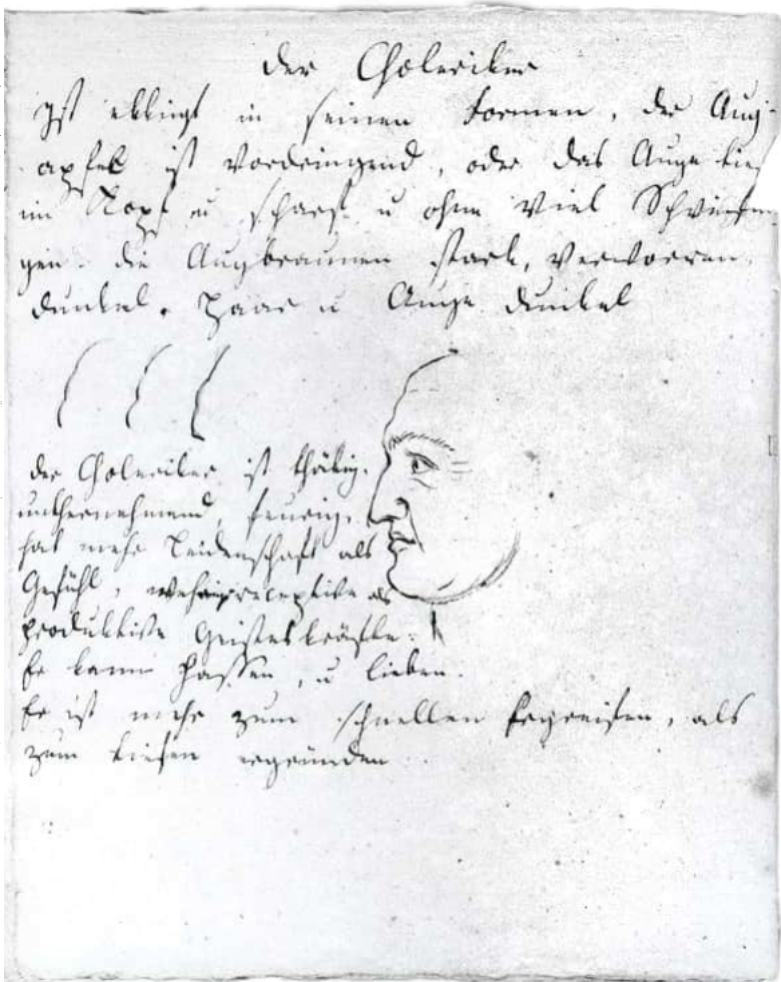 der Choleriker
Ist ekkigt in seinen Formen, der Aug-
apfel ist vordringend, oder das Auge tief
im Kopf u scharf u ohne viel Schwin-
gen. die Augbraunen stark, verworren
dunkel. Haar u Auge dunkel
der Choleriker ist thätig,
unthernehmend, feurig,
hat mehr Leidenschaft als
Gefühl, mehr receptive als
produktive Geisteskräfte.
Er kann hassen, u lieben.
Er ist mehr zum schnellen Ergreifen, als
zum tiefen ergründen